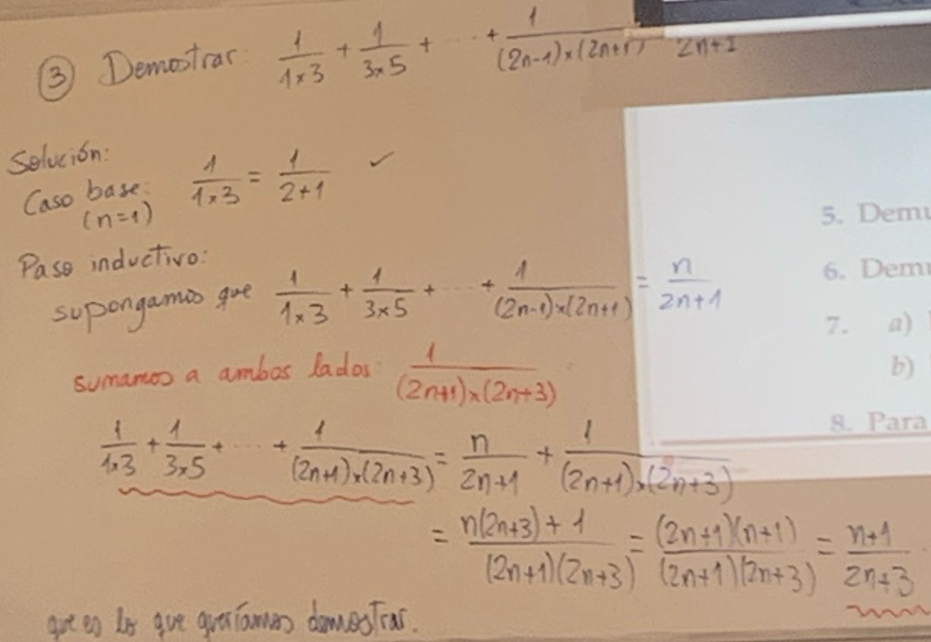 ③ Demostrar: 1/(1×3) + 1/(3×5) + ... + 1/((2n-1)×(2n+1)) 2n+1
Solución:
Caso base: 1/(1×3) = 1/(2+1) ✓
(n=1)
Paso inductivo:
supongamos que 1/(1×3) + 1/(3×5) + ... + 1/((2n-1)×(2n+1)) = n/(2n+1)
sumamos a ambos lados: 1/((2n+1)×(2n+3))
1/(1×3) + 1/(3×5) + ... + 1/((2n+1)×(2n+3)) = n/(2n+1) + 1/((2n+1)×(2n+3))
= (n(2n+3)+1)/((2n+1)(2n+3)) = ((2n+1)(n+1))/((2n+1)(2n+3)) = (n+1)/(2n+3).
que es lo que queríamos demostrar.
5. Dem
6. Dem
7. a)
b)
8. Para